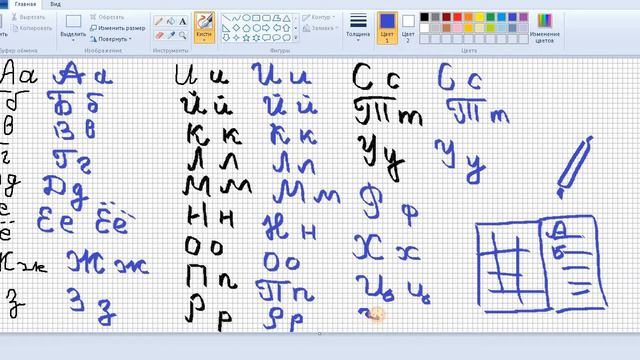 Главная Вид
Вырезать
Копировать
Выделить
Обрезать
Изменить размер
Повернуть
Кисти
Контур
Заливка
Толщина
Цвет 1
Цвет 2
Изменение цветов
Буфер обмена Изображение Инструменты Фигуры Цвета
Аа Аа Ии Ии Сс Сс
б Бб Йй Йй Тт Тт
в Вв Кк Кк Уу Уу
г Гг Лл Лл
д Дд Мм Мм Фф
е ё Ее Ёё Нн Нн Хх
Жж Жж Оо Оо Цц
з Зз Пп Пп
Рр Рр
А
Б